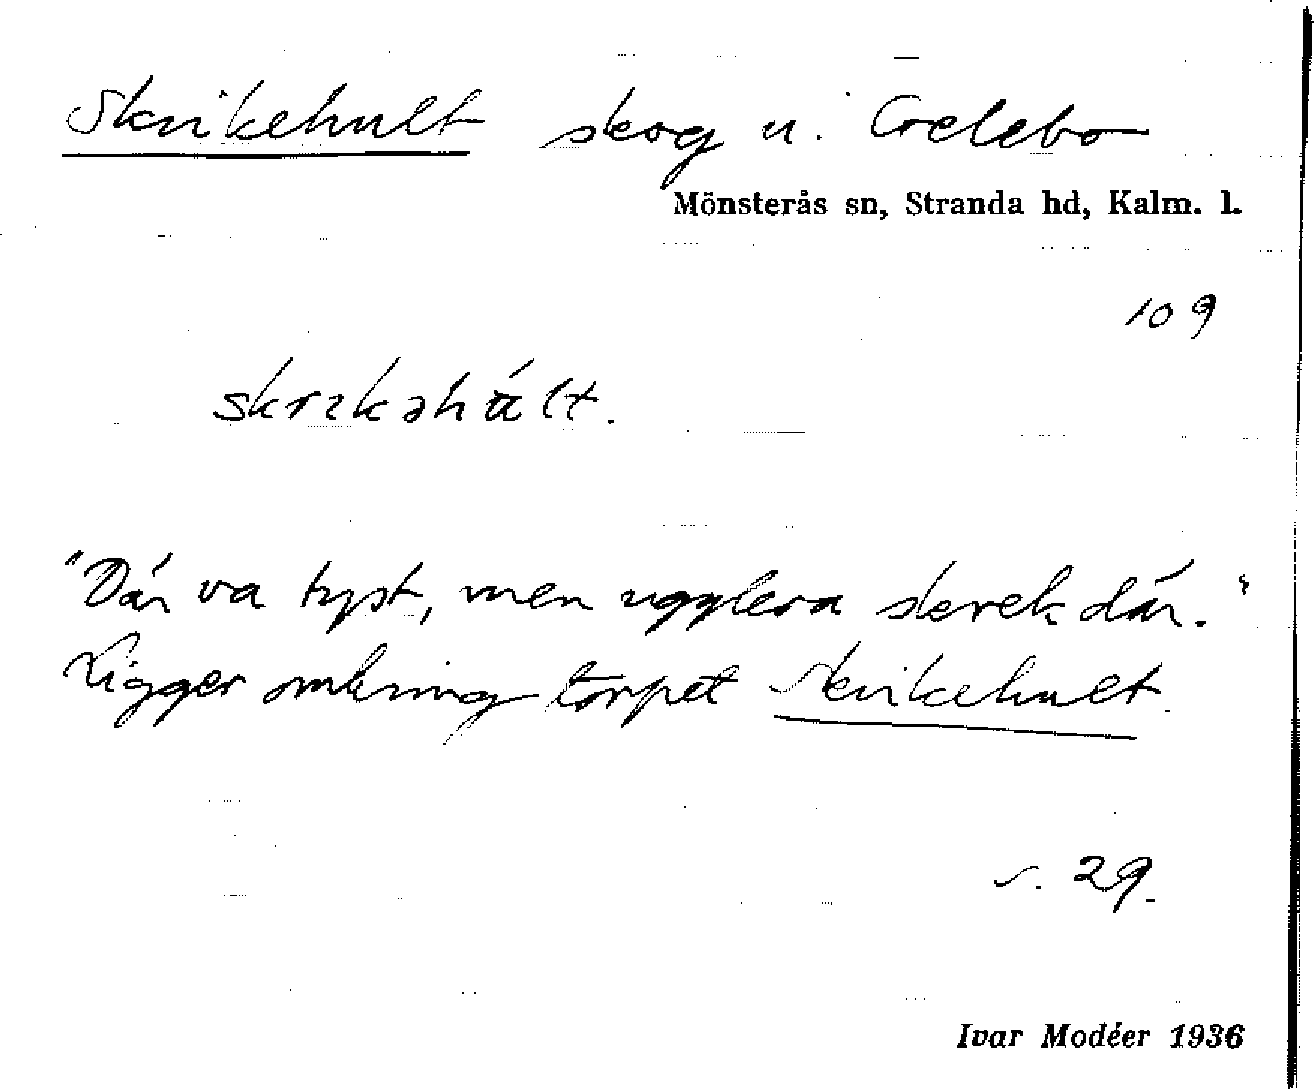 Skrikehult skog u. Crelebo
Mönsterås sn, Stranda hd, Kalm. l.
109
skrikəhált.
"Där va tyst, men ugglera skrek där."
Ligger omkring torpet Skrikehult.
s. 29.
Ivar Modéer 1936